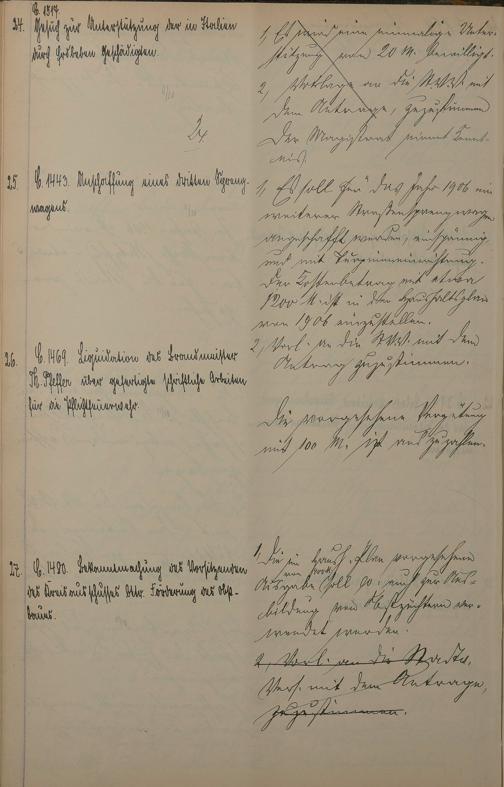 24.
C. 1717
Gesuch zur Unterstützung der in Italien
durch Erdbeben Geschädigten.
1, Es wird eine einmalige Unter-
stützung von 20 M. bewilligt.
2, Vorlage an die StVV mit
dem Antrage, zuzustimmen
Der Magistrat nimmt Kennt-
nis.
25.
C. 1443. Anschaffung eines dritten Spreng-
wagens.
1, Es soll für das Jahr 1906 ein
weiterer Straßensprengwagen
angeschafft werden, einspännig
und mit
Der Kostenbetrag mit etwa
1200 M. ist in den Haushaltsplan
von 1906 einzustellen.
2, Vorl. an die StVV. mit dem
Antrag zuzustimmen.
26.
C. 1469. Liquidation des Brandmeister
Th. Pfeffer über gefertigte schriftliche Arbeiten
für die Pflichtfeuerwehr.
Die vorgesehene Vergütung
mit 100 M. ist auszuzahlen.
27.
C. 1480. Bekanntmachung des Vorsitzenden
des Kreisausschusses betr. Förderung des Obst-
baues.
1, Die im Haush. Plan vorgesehene
Ausgabe soll auch zur Aus-
bildung von Obstzüchtern ver-
wendet werden.
2, Vorl. an die Stadtv.
Vers. mit dem Antrage,
zuzustimmen.